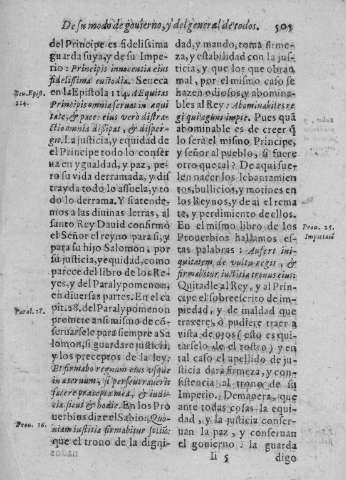 De su modo de gouierno, y del general de todos. 505
del Principe es fidelissima
guarda suya, y de su Impe-
rio: Principis innocentia eius
fidelissima custodia. Seneca
Sen. Epist. 114.
en la Epistola 114. Æquitas
Principis omnia seruat in aqui
tate, & pace: eius verò distra-
ctio omnia dissipat, & disper-
git. La justicia, y equidad de
el Principe todo lo conser
ua en ygualdad, y paz, pe-
ro su vida derramada, y dis
trayda todo lo assuela, y to
do lo derrama. Y si atende-
mos a las diuinas letras, al
santo Rey Dauid confirmò
el Señor el reyno para si, y
para su hijo Salomon; por
su justicia, y equidad, como
parece del libro de los Re-
yes, y del Paralypomenon,
en diuersas partes. En el ca
Paral. 28.
pit. 28. del Paralypomenon
promete ansimismo de cõ-
seruarsele para siempre a Sa
lomon, si guardare justicia,
y los preceptos de la ley:
Et firmabo regnum eius vsque
in æternum, si perseuerauerit
facere præcepta mea, & iudi-
cia sicut & hodie. En los Pro
uerbios dize el Sabio: Quo-
Prou. 16.
niam iustitia firmabitur solium:
que el trono de la digni-
dad, y mando, toma firme-
za, y estabilidad con la jus-
ticia, y que los que obran
mal, por el mismo caso se
hazen odiosos, y abomina-
bles al Rey: Abominabiles re-
gi qui agunt impie. Pues què
abominable es de creer q̃
lo serà el mismo Principe,
y señor al pueblo, si fuere
otro que tal? De aqui sue-
len nacer los leuantamien-
tos, bullicios, y motines en
los Reynos, y de ai el rema
te, y perdimiento dellos.
En el mismo libro de los
Prou. 25.
Prouerbios hallamos es-
tas palabras: Aufert ini-
quitatem de vultu regis, &
firmabitur iustitia tronus eius:
Quitadle al Rey, y al Prin-
cipe el sobreescrito de im-
piedad, y de maldad que
traxere, ò pudiere traer a
vista de ojos (esto es qui-
tarselo de el rostro) y en
tal caso el apellido de jus-
ticia darà firmeza, y con-
sistencia al trono de su
Imperio. Demanera, que
ante todas cosas la equi-
dad, y la justicia conser-
uan la paz, y conseruan
el gouierno: la guarda
couan
Ii 5 digo